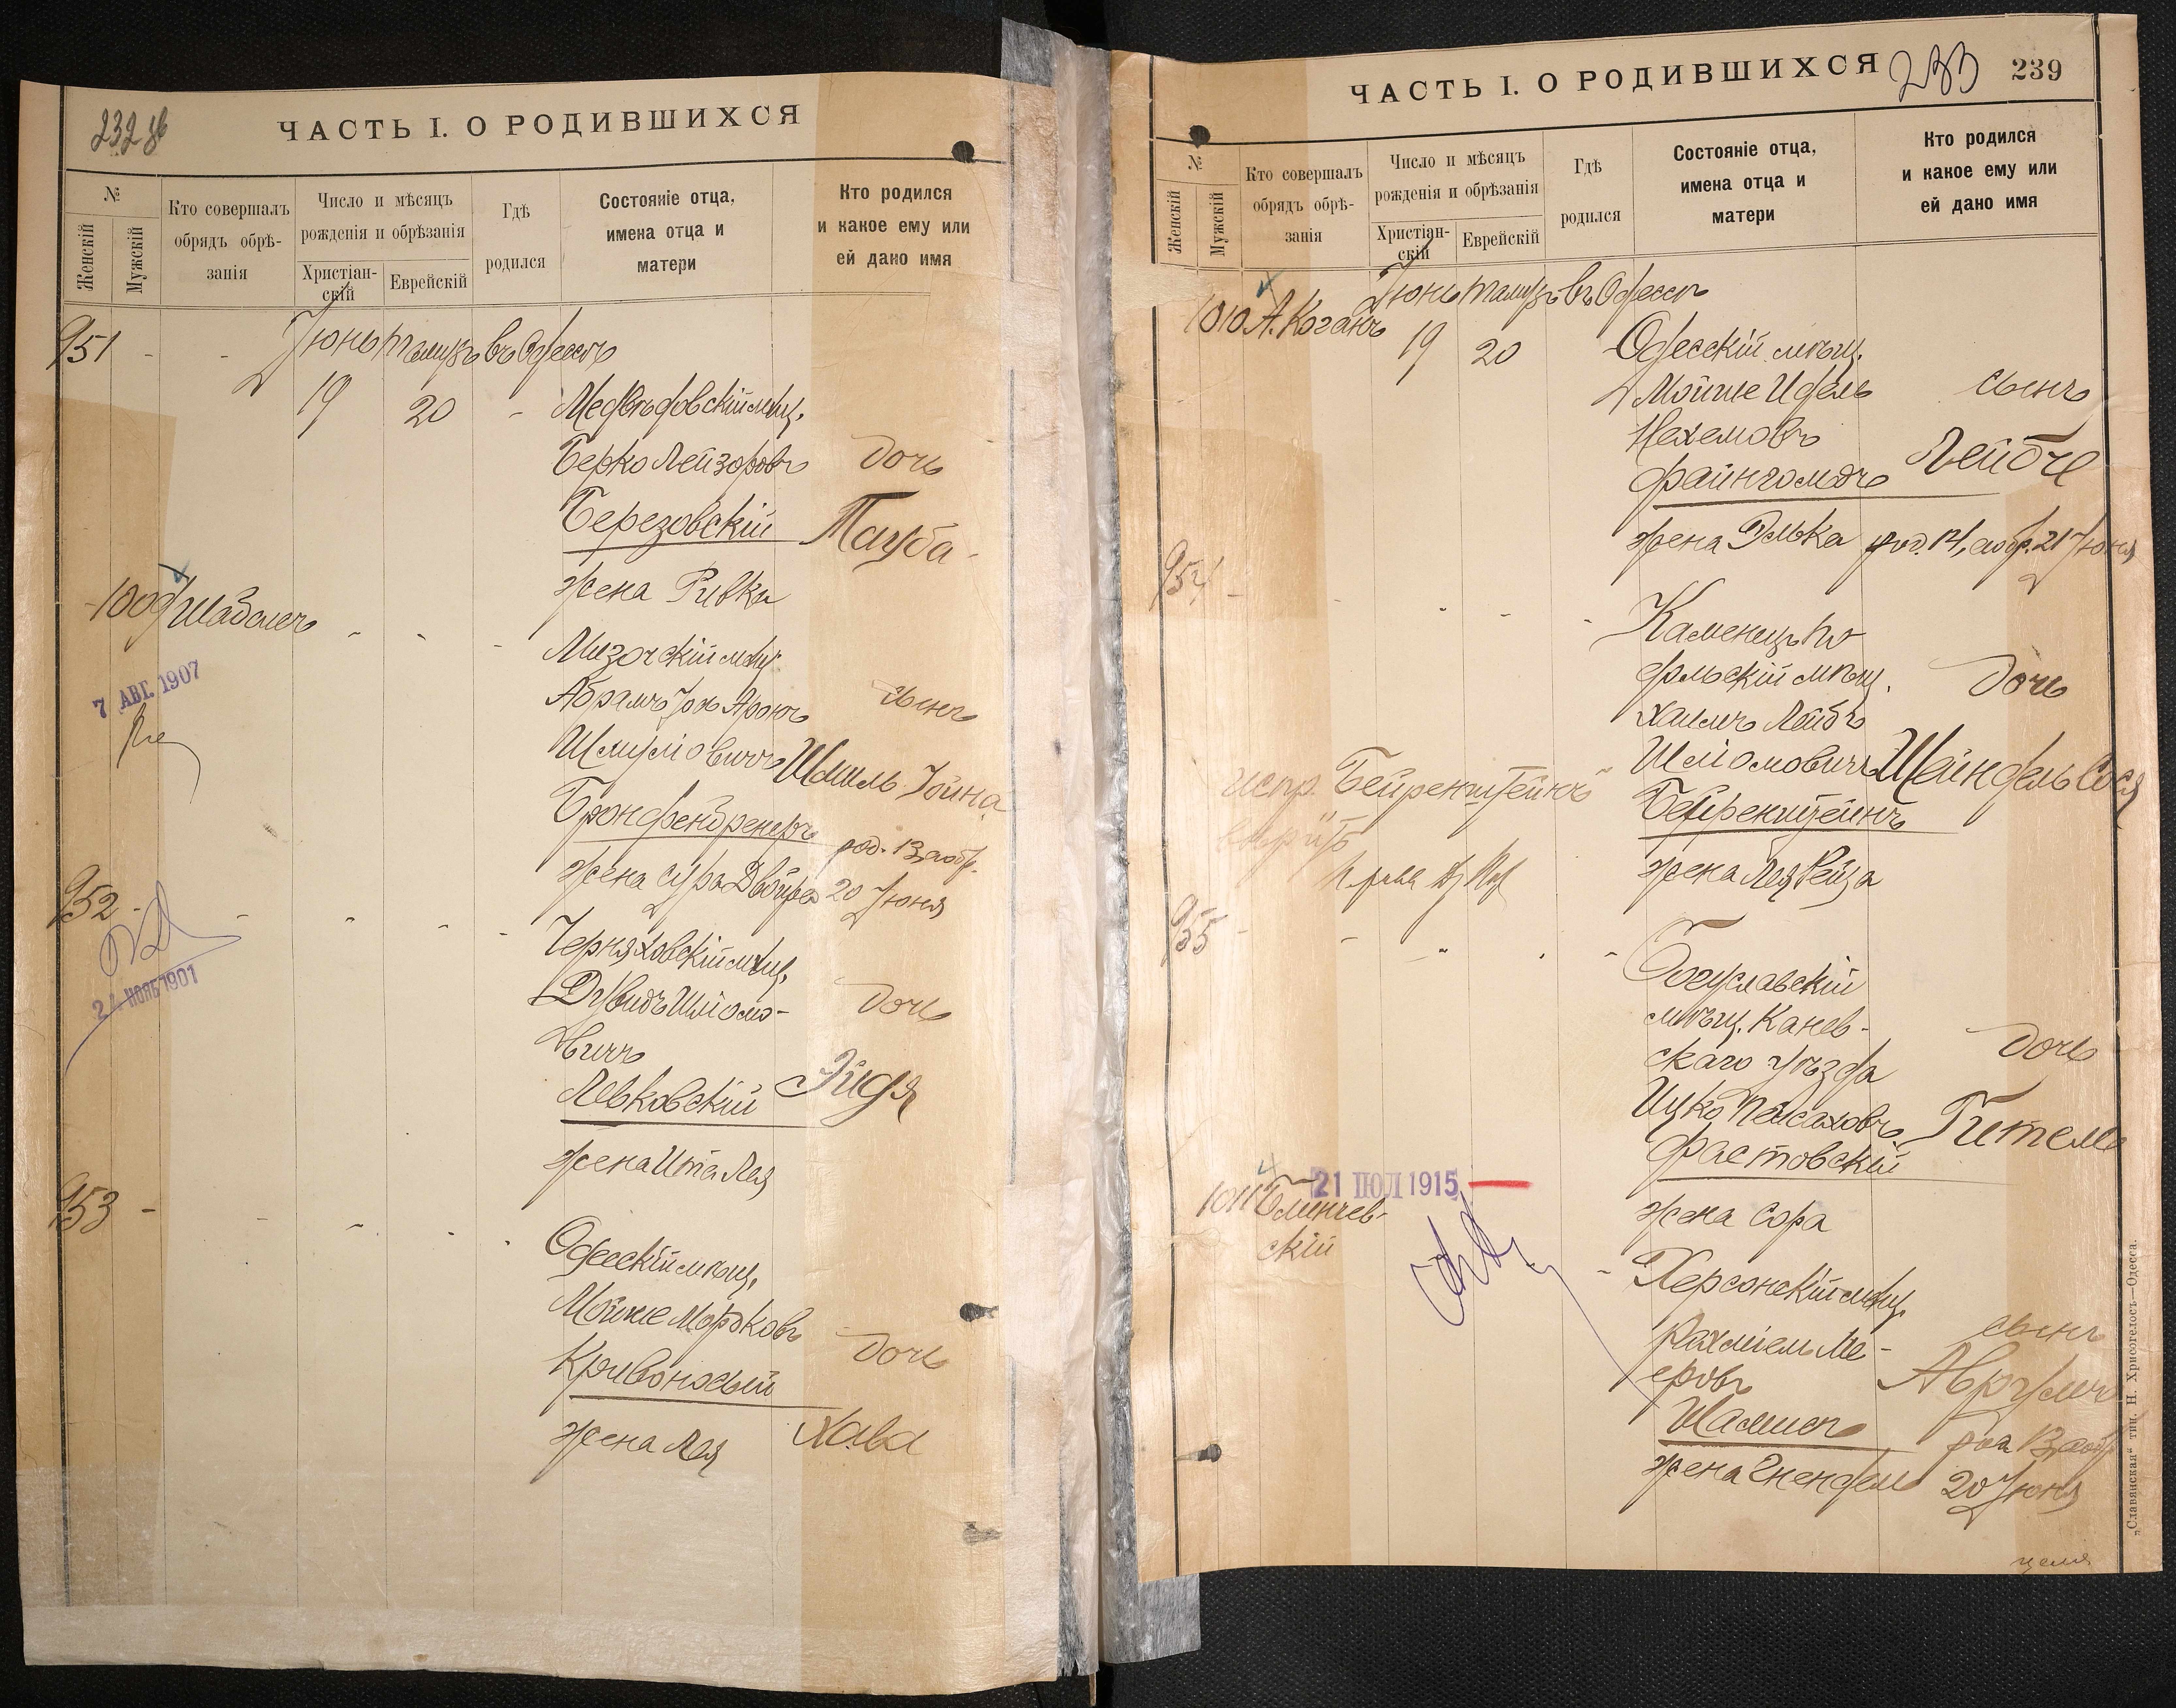 232 об
ЧАСТЬ I. О РОДИВШИХСЯ
№
Женскій
Мужскій
Кто совершалъ
обрядъ обрѣ-
занія
Число и мѣсяцъ
рожденія и обрѣзанія
Христіан-
скій
Еврейскій
Гдѣ
родился
Состояніе отца,
имена отца и
матери
Кто родился
и какое ему или
ей дано имя
951 - - Іюнь Тамузъ въ Одессѣ
19 20 - Медвѣдовскій мѣщ.
Берко Лейзоровъ дочь
Березовскій Тауба
жена Ривка
1009 Шабсисъ
Мизочскій мѣщ.
7 АВГ. 1907
Абрамъ Аронъ сынъ
Шмуліовичъ Шмиль Іойна
Бронфенбренеръ род. 13, обр.
жена Сура Двойра 20 Іюня
952 -
Черняховскій мѣщ.
2 НОЯБ 1901
Дувидъ Шліомо- дочь
вичъ
Левковскій Эйдя
жена Ита Лея
953 -
Одесскій мѣщ.
Мойше Мордковъ
Кривоносый дочь
жена Лея Хава
ЧАСТЬ I. О РОДИВШИХСЯ 233 239
№
Женскій
Мужскій
Кто совершалъ
обрядъ обрѣ-
занія
Число и мѣсяцъ
рожденія и обрѣзанія
Христіан-
скій
Еврейскій
Гдѣ
родился
Состояніе отца,
имена отца и
матери
Кто родился
и какое ему или
ей дано имя
Іюнь Тамузъ въ Одессѣ
1010 А. Коганъ 19 20 Одесскій мѣщ.
Мойше Идель сынъ
Нехемовъ
Файнгольдъ Лейбе
жена Элька род. 14, обр. 21 Іюня
954 -
Каменецъ По-
дольскій мѣщ. дочь
Хаимъ Лейбъ
Шліомовичъ Шейндель Сося
испр. Бейренштейнъ
Бейренштейнъ
вѣрить
жена Лея Рейза
955 -
Богуславскій
мѣщ. Канев-
скаго уѣзда дочь
Ицко Пейсаховъ Гитель
Фастовскій
жена Сора
1011 Блинчев-
скій
21 ІЮЛ 1915
Херсонскій мѣщ.
Рахміель Ме- сынъ
еровъ Аврумъ
Шамисъ род. 13, обр.
жена Энендель 20 Іюня
„Славянская“ тип. Н. Хрисогелосъ—Одесса.